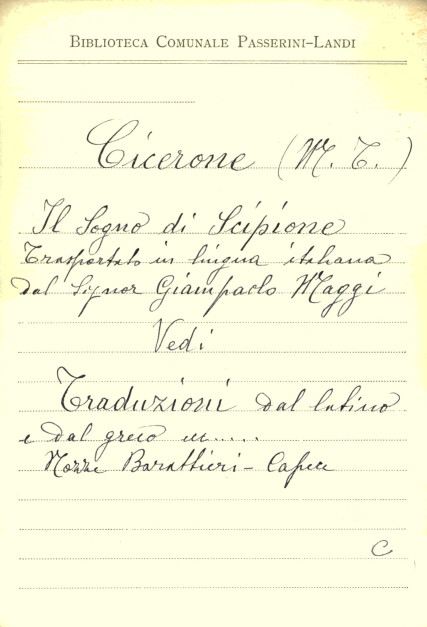 BIBLIOTECA COMUNALE PASSERINI-LANDI
Cicerone (M. T.)
Il Sogno di Scipione
Trasportato in lingua italiana
dal Signor Giampaolo Maggi
Vedi
Traduzioni dal latino
e dal greco in.....
Nozze Barattieri-Capece
C